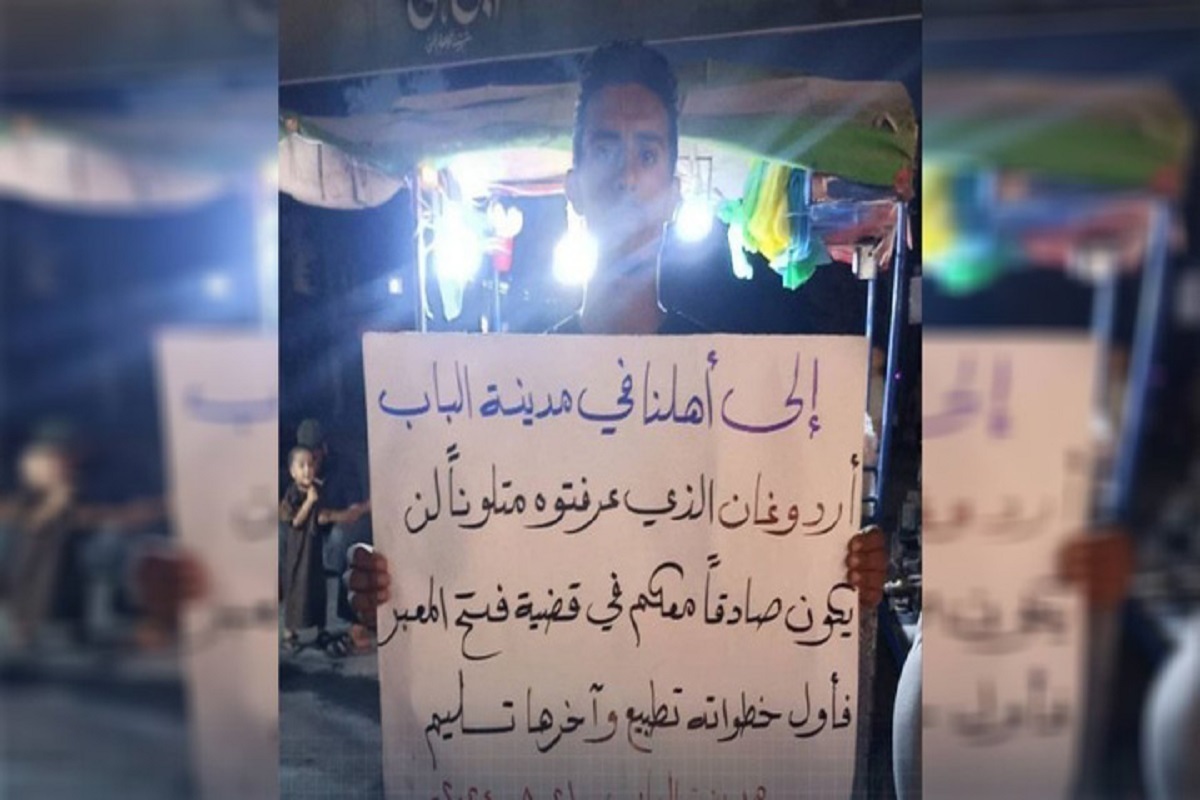 إلى أهلنا في مدينة الباب
أردوغان الذي عرفتوه متلوناً لن
يكون صادقاً معكم في قضية فتح المعبر
فأول خطواته تطبيع وآخرها تسليم